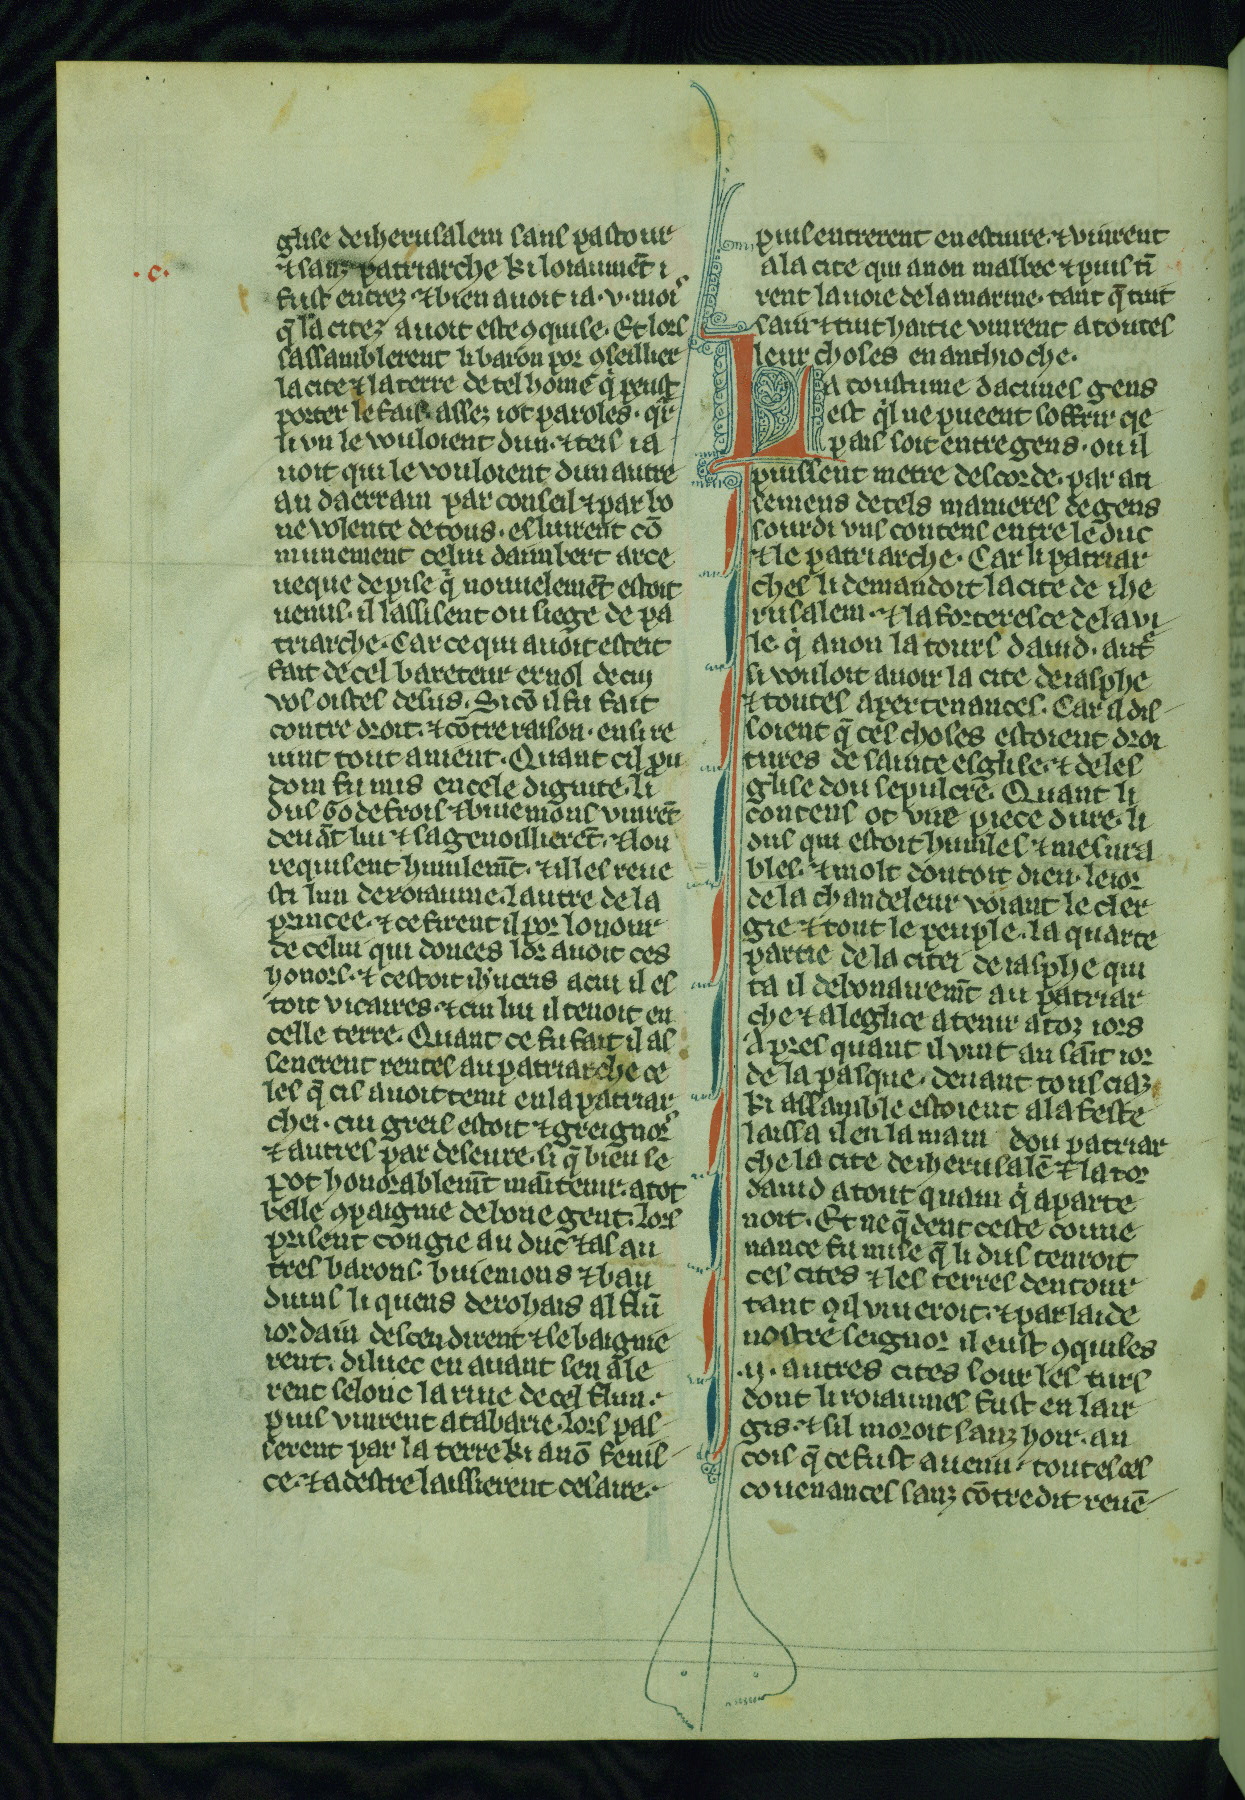 glise de iherusalem sans pastour
⁊ sanz patriarche ki loiaumẽt i
.c.
fust entrez. ⁊ bien auoit ia .v. mois
q̃ la citez auoit este ꝯquise. Et lors
sassamblerent li baron por ꝯseillier
la cite ⁊ la terre de tel home q̇ peust
porter le fais. assez iot paroles. qr̃
li vn le vouloient dun. ⁊ teis ia
uoit qui le vouloient dun autre
au daerrain par conseil ⁊ par bo
ne volente de tous. eslurent cõ
munement celui daimbert arce
ueque de pise q̇ nouuelemẽt estoit
uenus. il lassisent ou siege de pa
triarche. Car ce qui auoit esteit
fait de cel bareteur ernol de cui
vos oistes desus. Si cõ il fu fait
contre droit. ⁊ cõtre raison. ensi re
uint tout anient. Quant cil pru
dom fu mis en cele dignite. li
dus Godefrois ⁊ buiemons vinrẽt
deuãt lui ⁊ sagenoillierẽt. ⁊ lou
requisent humlemẽt. ⁊ il les reue
sti lun de roiaume. lautre de la
princee. ⁊ ce firent il por lonour
de celui qui donees lor auoit ces
honors. ⁊ cestoit ihucris a cui il es
toit vicaires. ⁊ cui liu il tenoit en
celle terre. Quant ce fu fait il as
senerent rentes au patriarche ce
les q̃ cis auoit tenu en la patriar
chei. cui greis estoit ⁊ greignors
⁊ autres par deseure. si q̃ bien se
pot honorablemẽt maĩtenir. a tot
belle ꝯpaignie de bone gent. Lors
prisent congie au duc ⁊ as au
tres barons. buiemons ⁊ bau
duins li quens de rohais al flũ
iordain descendirent ⁊ se baignie
rent. diluec en auant sen ale
rent selonc la riue de cel flun.
puis vinrent a tabarie. Lors pas
serent par la terre ki a nõ fenis
ce. ⁊ a destre laissierent cesaire.
puis entrerent en esture. ⁊ vinrent
a la cite qui a non malbec ⁊ puis tĩ
rent la uoie de la marine. tant q̃ tuit
sain ⁊ tuit haitie vinrent a toutes
leur choses en anthioche.
La coustume dacunes gens
est q̃l ne pueent soffrir qe
pais soit entre gens. ou il
puissent metre descorde. par ati
semens de tels manieres de gens
sourdi vns contens entre le duc
⁊ le patriarche. Car li patriar
ches li demandoit la cite de ihe
rusalem. ⁊ la forteresce de la vi
le. q̇ a non la tours dauid. autˢ
si vouloit auoir la cite de iasphe
⁊ toutes apertenances. Car il dis
soient q̃ ces choses estoient droi
tures de sainte esglise. ⁊ de les
glise dou sepulcre. Quant li
contens ot vne piece dure. li
dus qui estoit humles ⁊ mesura
bles. ⁊ molt doutoit dieu. le ior
de la chandeleur voiant le cler
gie ⁊ tout le peuple. la quarte
partie de la citei de iasphe qui
ta il debonairemẽt au patriar
che ⁊ a leglice a tenir a toz iors
Apres quant il vint au sãit ior
de la pasque. deuant tous ciaz
ki assamble estoient a la feste
laissa il en la main dou patriar
che la cite de iherusalẽ ⁊ la tor
dauid a tout quam q̇ aparte
noit. Et ne q̃ dent ceste coiue
nance fu mise q̃ li dus tenroit
ces cites ⁊ les terres dentour
tant q̃l viueroit. ⁊ par laide
nostre seignor il eust ꝯquises
.ij. autres cites sour les turs
dont li roiaumes fust en lair
gis. ⁊ sil moroit sanz hoir. an
cois q̃ ce fust auenu. toutes ces
couenances sanz cõtredit reuẽ